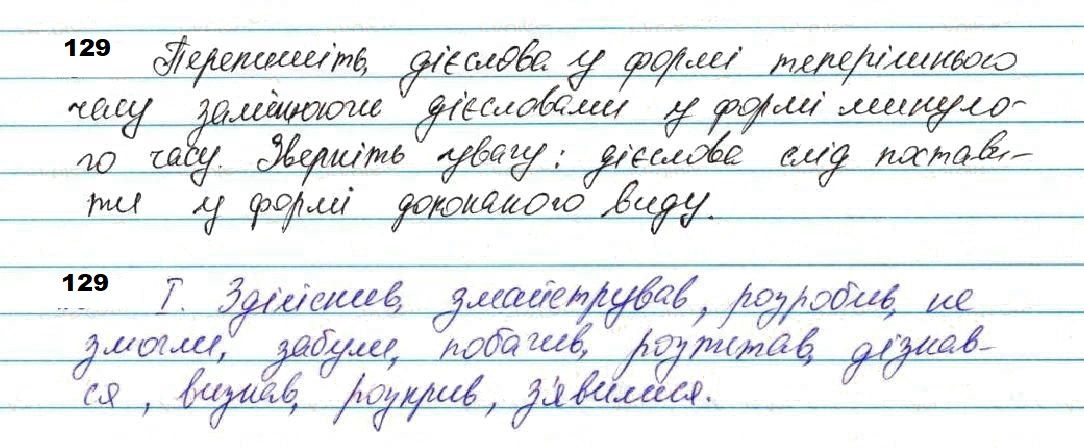 129 Перепишіть, дієслова у формі теперішнього
часу замінюючи дієсловами у формі минуло-
го часу. Зверніть увагу: дієслова слід постави-
ти у формі доконаного виду.
129 І. Здійснив, змайстрував, розробив, не
змогли, забули, побачив, розпитав, дізнав-
ся, визнав, розкрив, з'явилися.